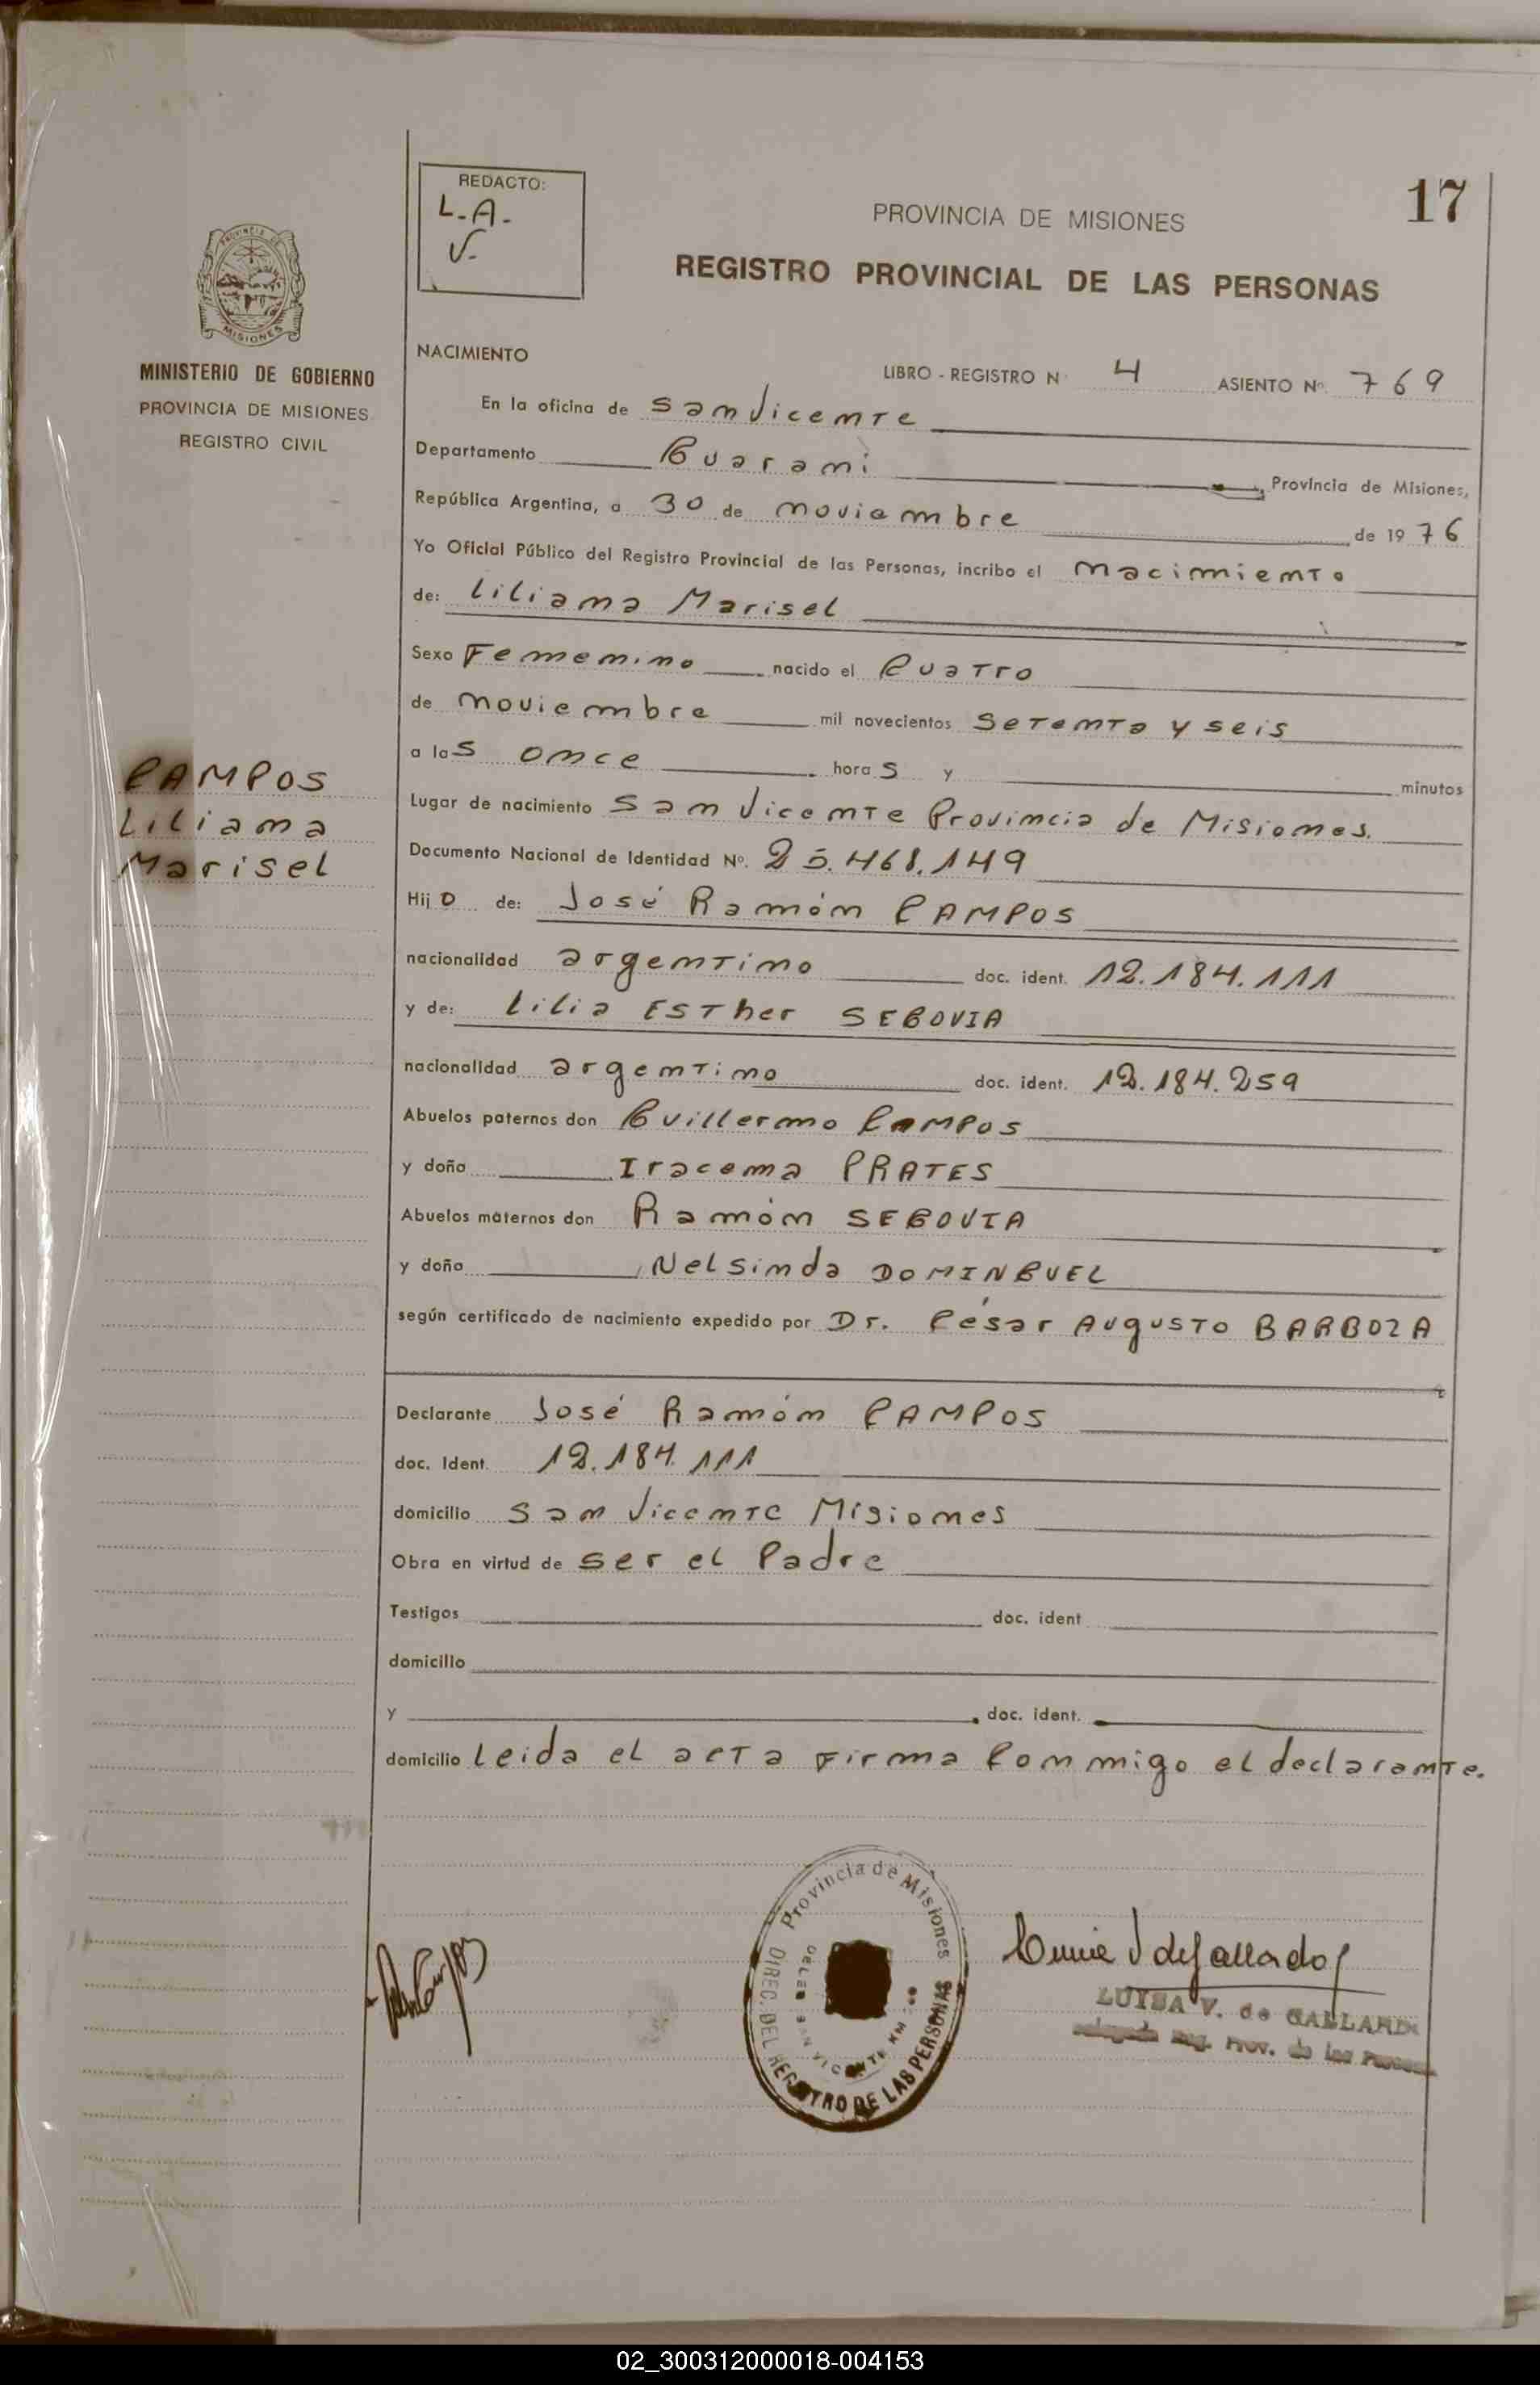 17
REDACTO:
L.A.
V.
PROVINCIA DE MISIONES
REGISTRO PROVINCIAL DE LAS PERSONAS
PROVINCIA DE
MISIONES
MINISTERIO DE GOBIERNO
PROVINCIA DE MISIONES
REGISTRO CIVIL
NACIMIENTO
LIBRO - REGISTRO N° 4 ASIENTO N° 769
En la oficina de San Vicente
Departamento Guarani Provincia de Misiones,
República Argentina, a 30 de noviembre de 1976
Yo Oficial Público del Registro Provincial de las Personas, incribo el nacimiento
de: Liliana Marisel
Sexo Femenino nacido el Cuatro
de noviembre mil novecientos setenta y seis
a las once horas y minutos
CAMPOS
Liliana
Marisel
Lugar de nacimiento San Vicente Provincia de Misiones.
Documento Nacional de Identidad N° 25.468.149
Hijo de: José Ramón CAMPOS
nacionalidad argentino doc. ident. 12.184.111
y de: Lilia Esther SEGOVIA
nacionalidad argentino doc. ident. 12.184.259
Abuelos paternos don Guillermo CAMPOS
y doña Iracema PRATES
Abuelos maternos don Ramón SEGOVIA
y doña Nelsinda DOMINGUEL
según certificado de nacimiento expedido por Dr. César Augusto BARBOZA
Declarante José Ramón CAMPOS
doc. Ident. 12.184.111
domicilio San Vicente Misiones
Obra en virtud de ser el Padre
Testigos doc. ident
domicilio
y doc. ident.
domicilio Leida el acta firma conmigo el declarante.
Provincia de Misiones
DIREC. DEL REGISTRO DE LAS PERSONAS
DELEG SAN VICENTE KM
LUISA V. de GALLARDO
Delegada Reg. Prov. de las Personas
02_300312000018-004153